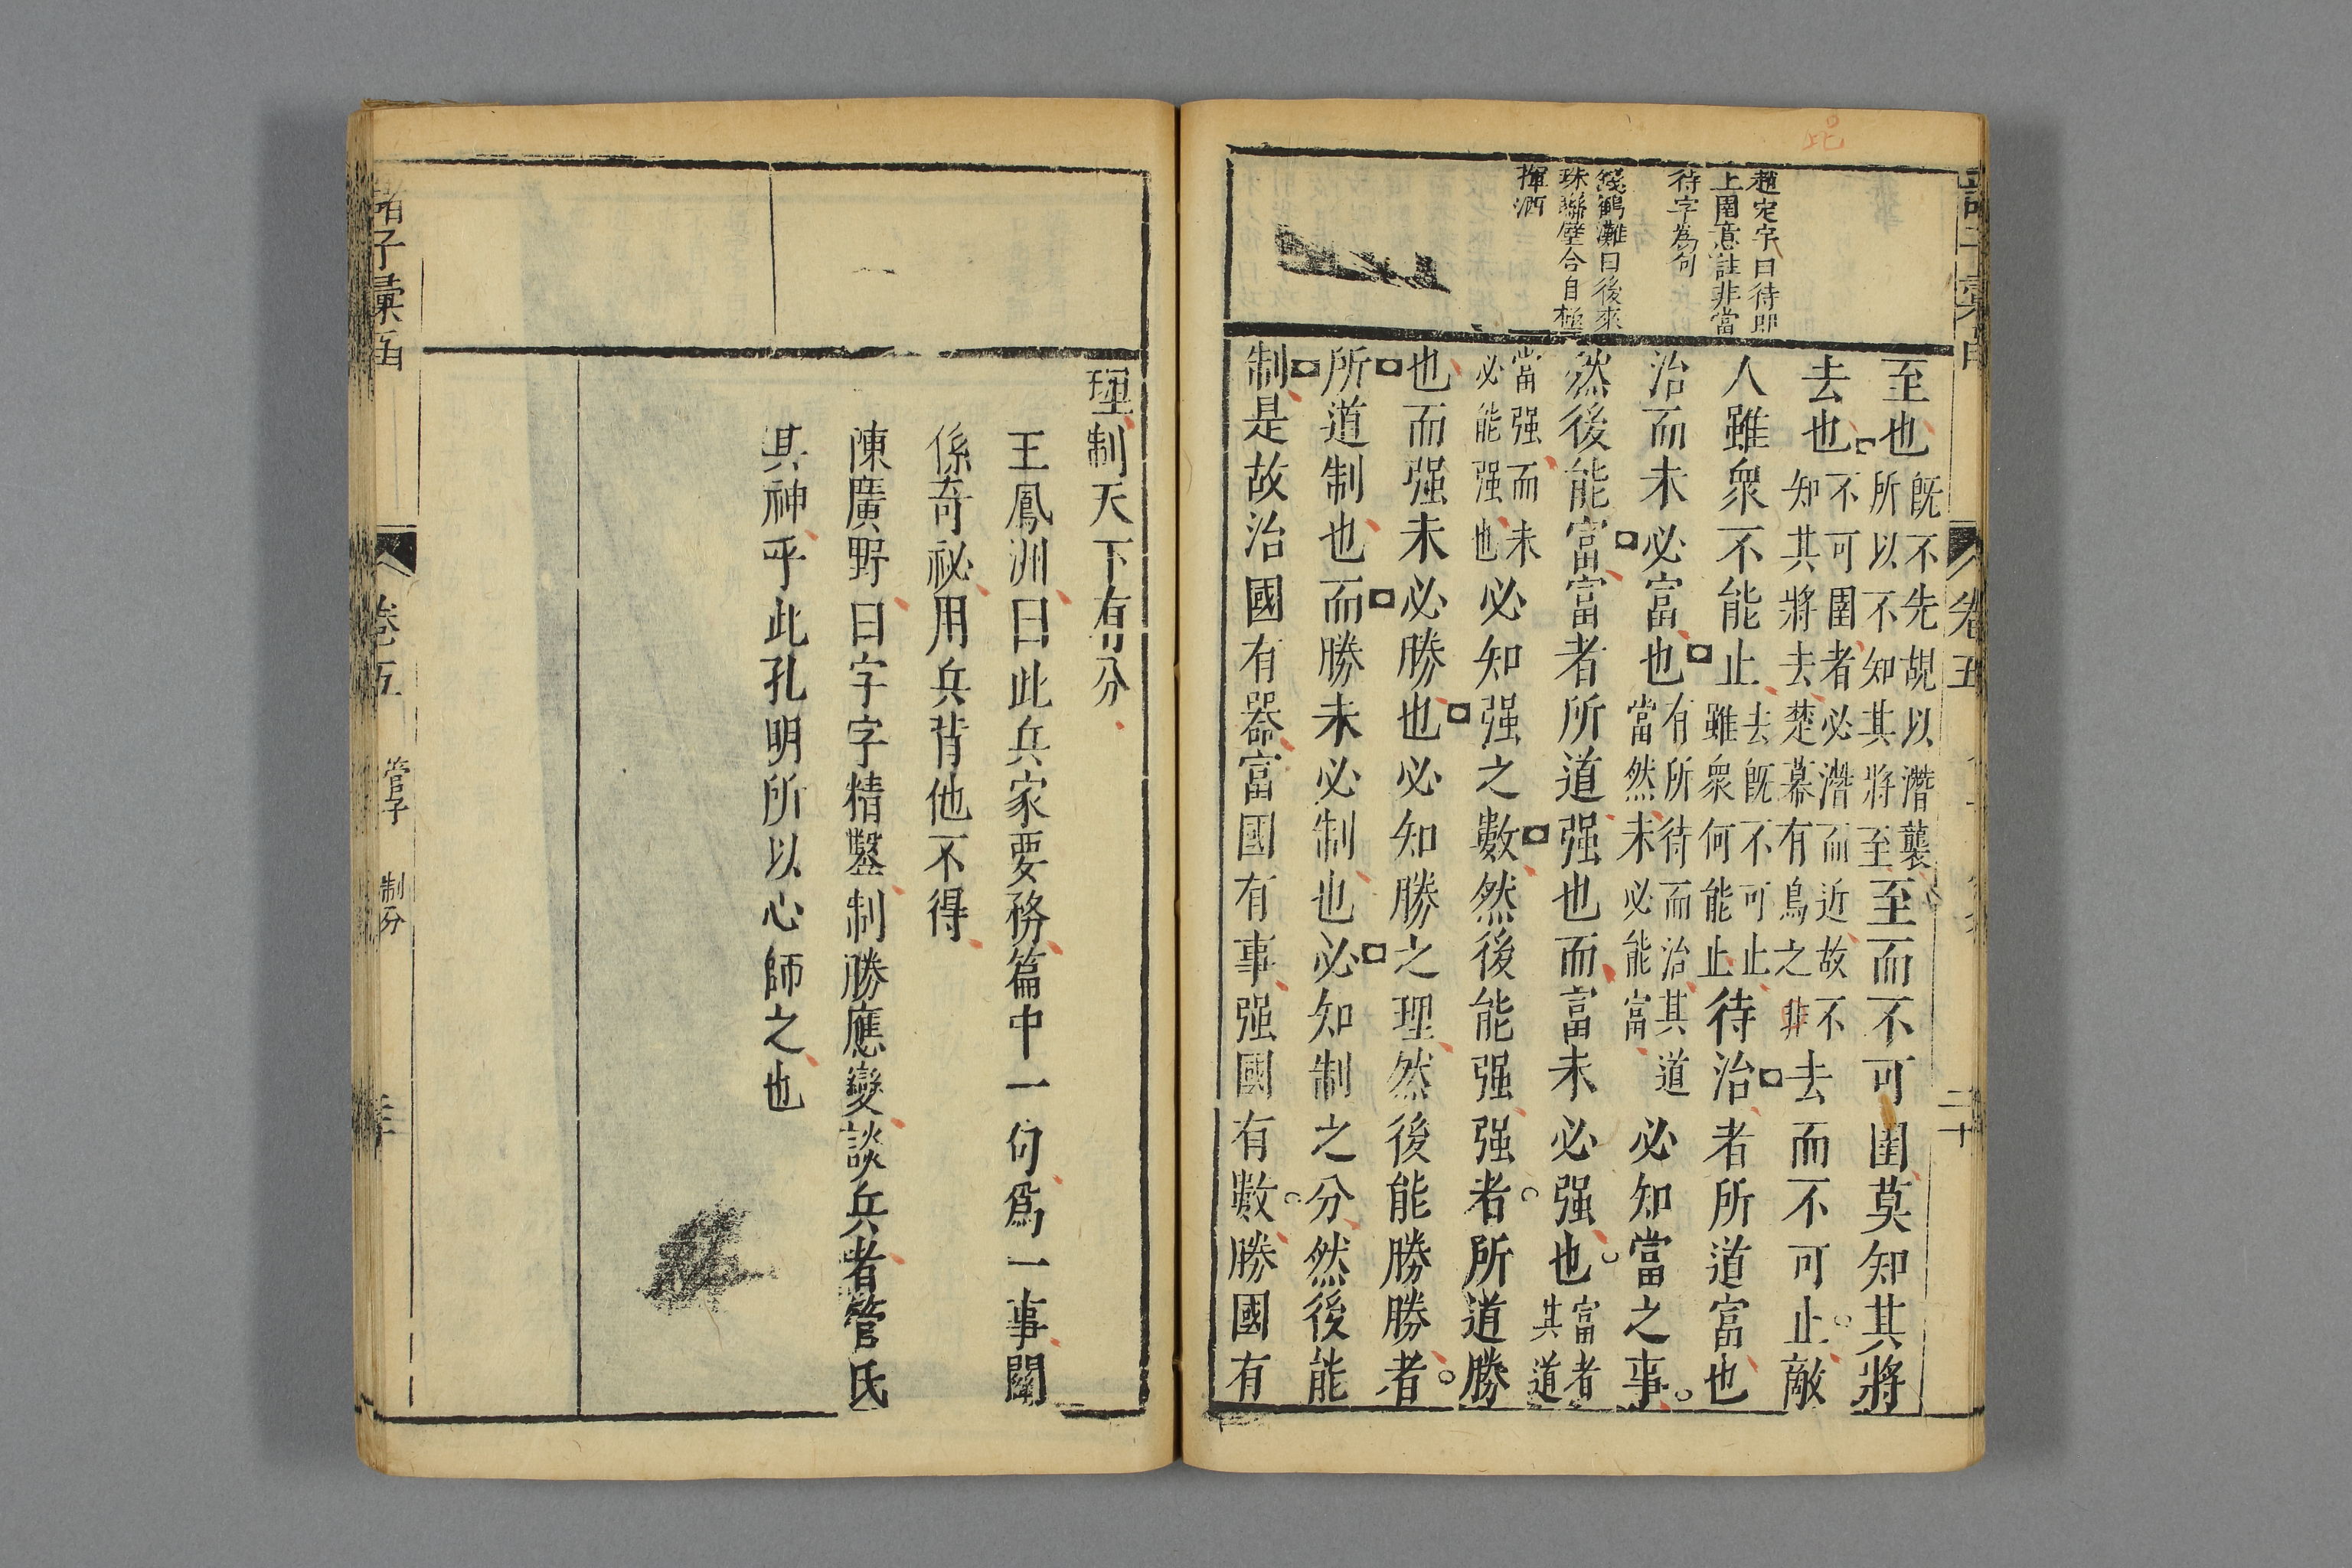 趙定宇曰待即
上圉意註非當
待字為句
錢鶴灘曰後來
珠聯璧合自極
揮洒
至也既不先覘以濳襲所以不知其將至至而不可圉莫知其將
去也不可圉者必濳而近故不知其將去楚幕有鳥之非去而不可止敵
人雖衆不能止去既不可止雖衆何能止待治者所道富也
治而未必富也有所待而治其道當然未必能富必知當之事
然後能富富者所道强也而富未必强也富者其道
當强而未必能强也必知强之數然後能强强者所道勝
也而强未必勝也必知勝之理然後能勝勝者
所道制也而勝未必制也必知制之分然後能
制是故治國有器富國有事强國有數勝國有
卷五
二十
理制天下有分
王鳳洲曰此兵家要務篇中一句爲一事闗
係奇祕用兵背他不得
陳廣野曰字字精鑿制勝應變談兵者管氏
其神乎此孔明所以心師之也
諸子彙函
卷五
管子
制分